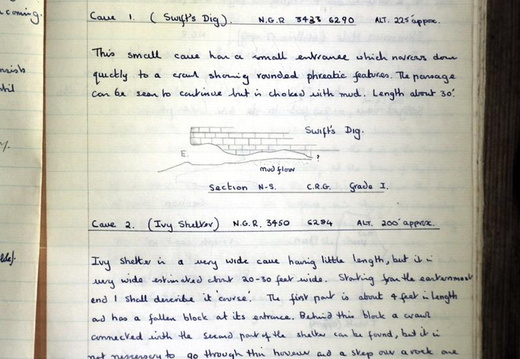 Cave 1. (Swift's Dig). N.G.R 3433 6290 ALT. 225' approx.
This small cave has a small entrance which narrows down
quickly to a crawl showing rounded phreatic features. The passage
can be seen to continue but is choked with mud. Length about 30'.
Swift's Dig.
E.
?
mud flow
Section N-S. C.R.G. Grade I.
Cave 2. (Ivy Shelter) N.G.R. 3450 6284 ALT. 200' approx.
Ivy Shelter is a very wide cave having little length, but it is
very wide estimated about 20-30 feet wide. Starting from the easternmost
end I shall describe it course. The first part is about 4 feet in length
and has a fallen block at its entrance. Behind this block a crawl
connected with the second part of the shelter can be found, but it is
not necessary to go through this however and a step over a rock